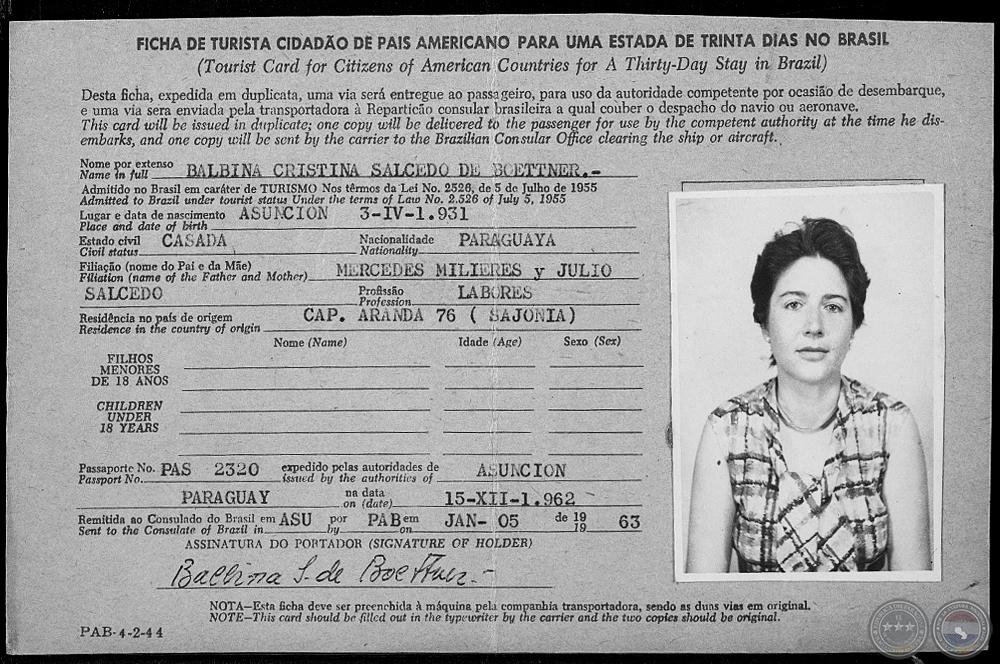 FICHA DE TURISTA CIDADÃO DE PAIS AMERICANO PARA UMA ESTADA DE TRINTA DIAS NO BRASIL
(Tourist Card for Citizens of American Countries for A Thirty-Day Stay in Brazil)
Desta ficha, expedida em duplicata, uma via será entregue ao passageiro, para uso da autoridade competente por ocasião de desembarque,
e uma via sera enviada pela transportadora à Repartição consular brasileira a qual couber o despacho do navio ou aeronave.
This card will be issued in duplicate; one copy will be delivered to the passenger for use by the competent authority at the time he dis-
embarks, and one copy will be sent by the carrier to the Brazilian Consular Office clearing the ship or aircraft.
Nome por extenso
Name in full BALBINA CRISTINA SALCEDO DE BOETTNER.-
Admitido no Brasil em caráter de TURISMO Nos têrmos da Lei No. 2526, de 5 de Julho de 1955
Admitted to Brazil under tourist status Under the terms of Law No. 2.526 of July 5, 1955
Lugar e data de nascimento ASUNCION 3-IV-1.931
Place and date of birth
Estado civil CASADA Nacionalidade PARAGUAYA
Civil status Nationality
Filiação (nome do Pai e da Mãe)
Filiation (name of the Father and Mother) MERCEDES MILIERES y JULIO
SALCEDO Profissão LABORES
Profession
Residência no país de origem CAP. ARANDA 76 ( SAJONIA)
Residence in the country of origin
Nome (Name) Idade (Age) Sexo (Sex)
FILHOS
MENORES
DE 18 ANOS
CHILDREN
UNDER
18 YEARS
Passaporte No. PAS 2320 expedido pelas autoridades de ASUNCION
Passport No. issued by the authorities of
PARAGUAY na data 15-XII-1.962
on (date)
Remitida ao Consulado do Brasil em ASU por PAB em JAN- 05 de 19 63
Sent to the Consulate of Brazil in by on 19
ASSINATURA DO PORTADOR (SIGNATURE OF HOLDER)
Balbina S. de Boettner.-
NOTA—Esta ficha deve ser preenchida à máquina pela companhia transportadora, sendo as duas vias em original.
NOTE—This card should be filled out in the typewriter by the carrier and the two copies should be original.
PAB-4-2-44